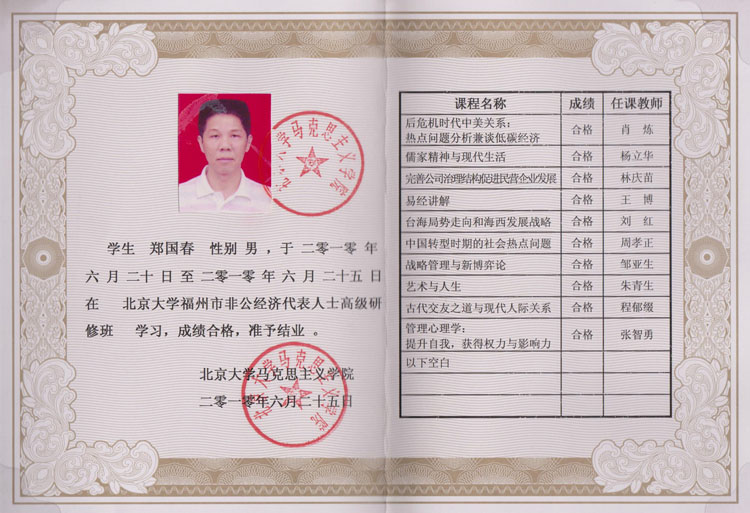 北京大学马克思主义学院
学生 郑国春 性别 男 ，于 二零一零 年
六 月 二十 日 至 二零一零 年 六 月 二十五 日
在 北京大学福州市非公经济代表人士高级研
修班 学习，成绩合格，准予结业 。
北京大学马克思主义学院
二零一零年六月二十五日
北京大学马克思主义学院
课程名称 成绩 任课教师
后危机时代中美关系：
热点问题分析兼谈低碳经济 合格 肖 炼
儒家精神与现代生活 合格 杨立华
完善公司治理结构促进民营企业发展 合格 林庆苗
易经讲解 合格 王 博
台海局势走向和海西发展战略 合格 刘 红
中国转型时期的社会热点问题 合格 周孝正
战略管理与新博弈论 合格 邹亚生
艺术与人生 合格 朱青生
古代交友之道与现代人际关系 合格 程郁缀
管理心理学：
提升自我，获得权力与影响力 合格 张智勇
以下空白